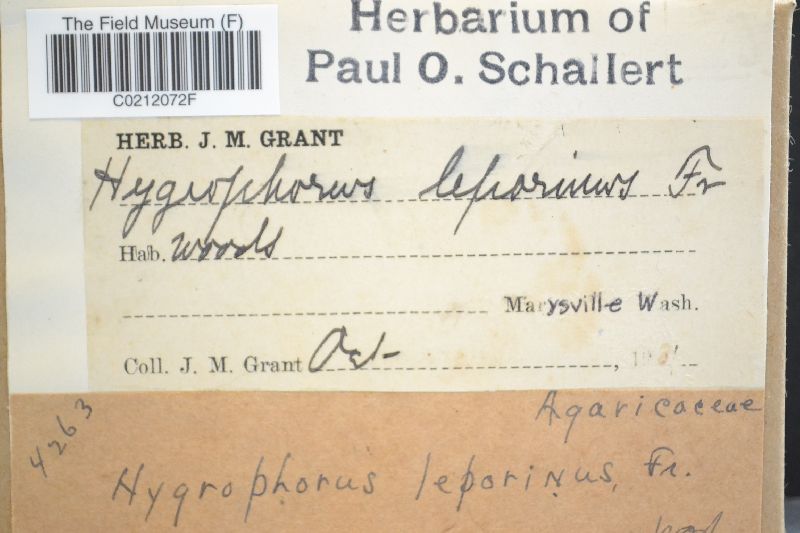 The Field Museum (F)
C0212072F
Herbarium of
Paul O. Schallert
HERB. J. M. GRANT
Hygrophorus leporinus Fr
Hab. woods
Marysville Wash.
Coll. J. M. Grant Oct , 19
Agaricaceae
4263
Hygrophorus leporinus, Fr.